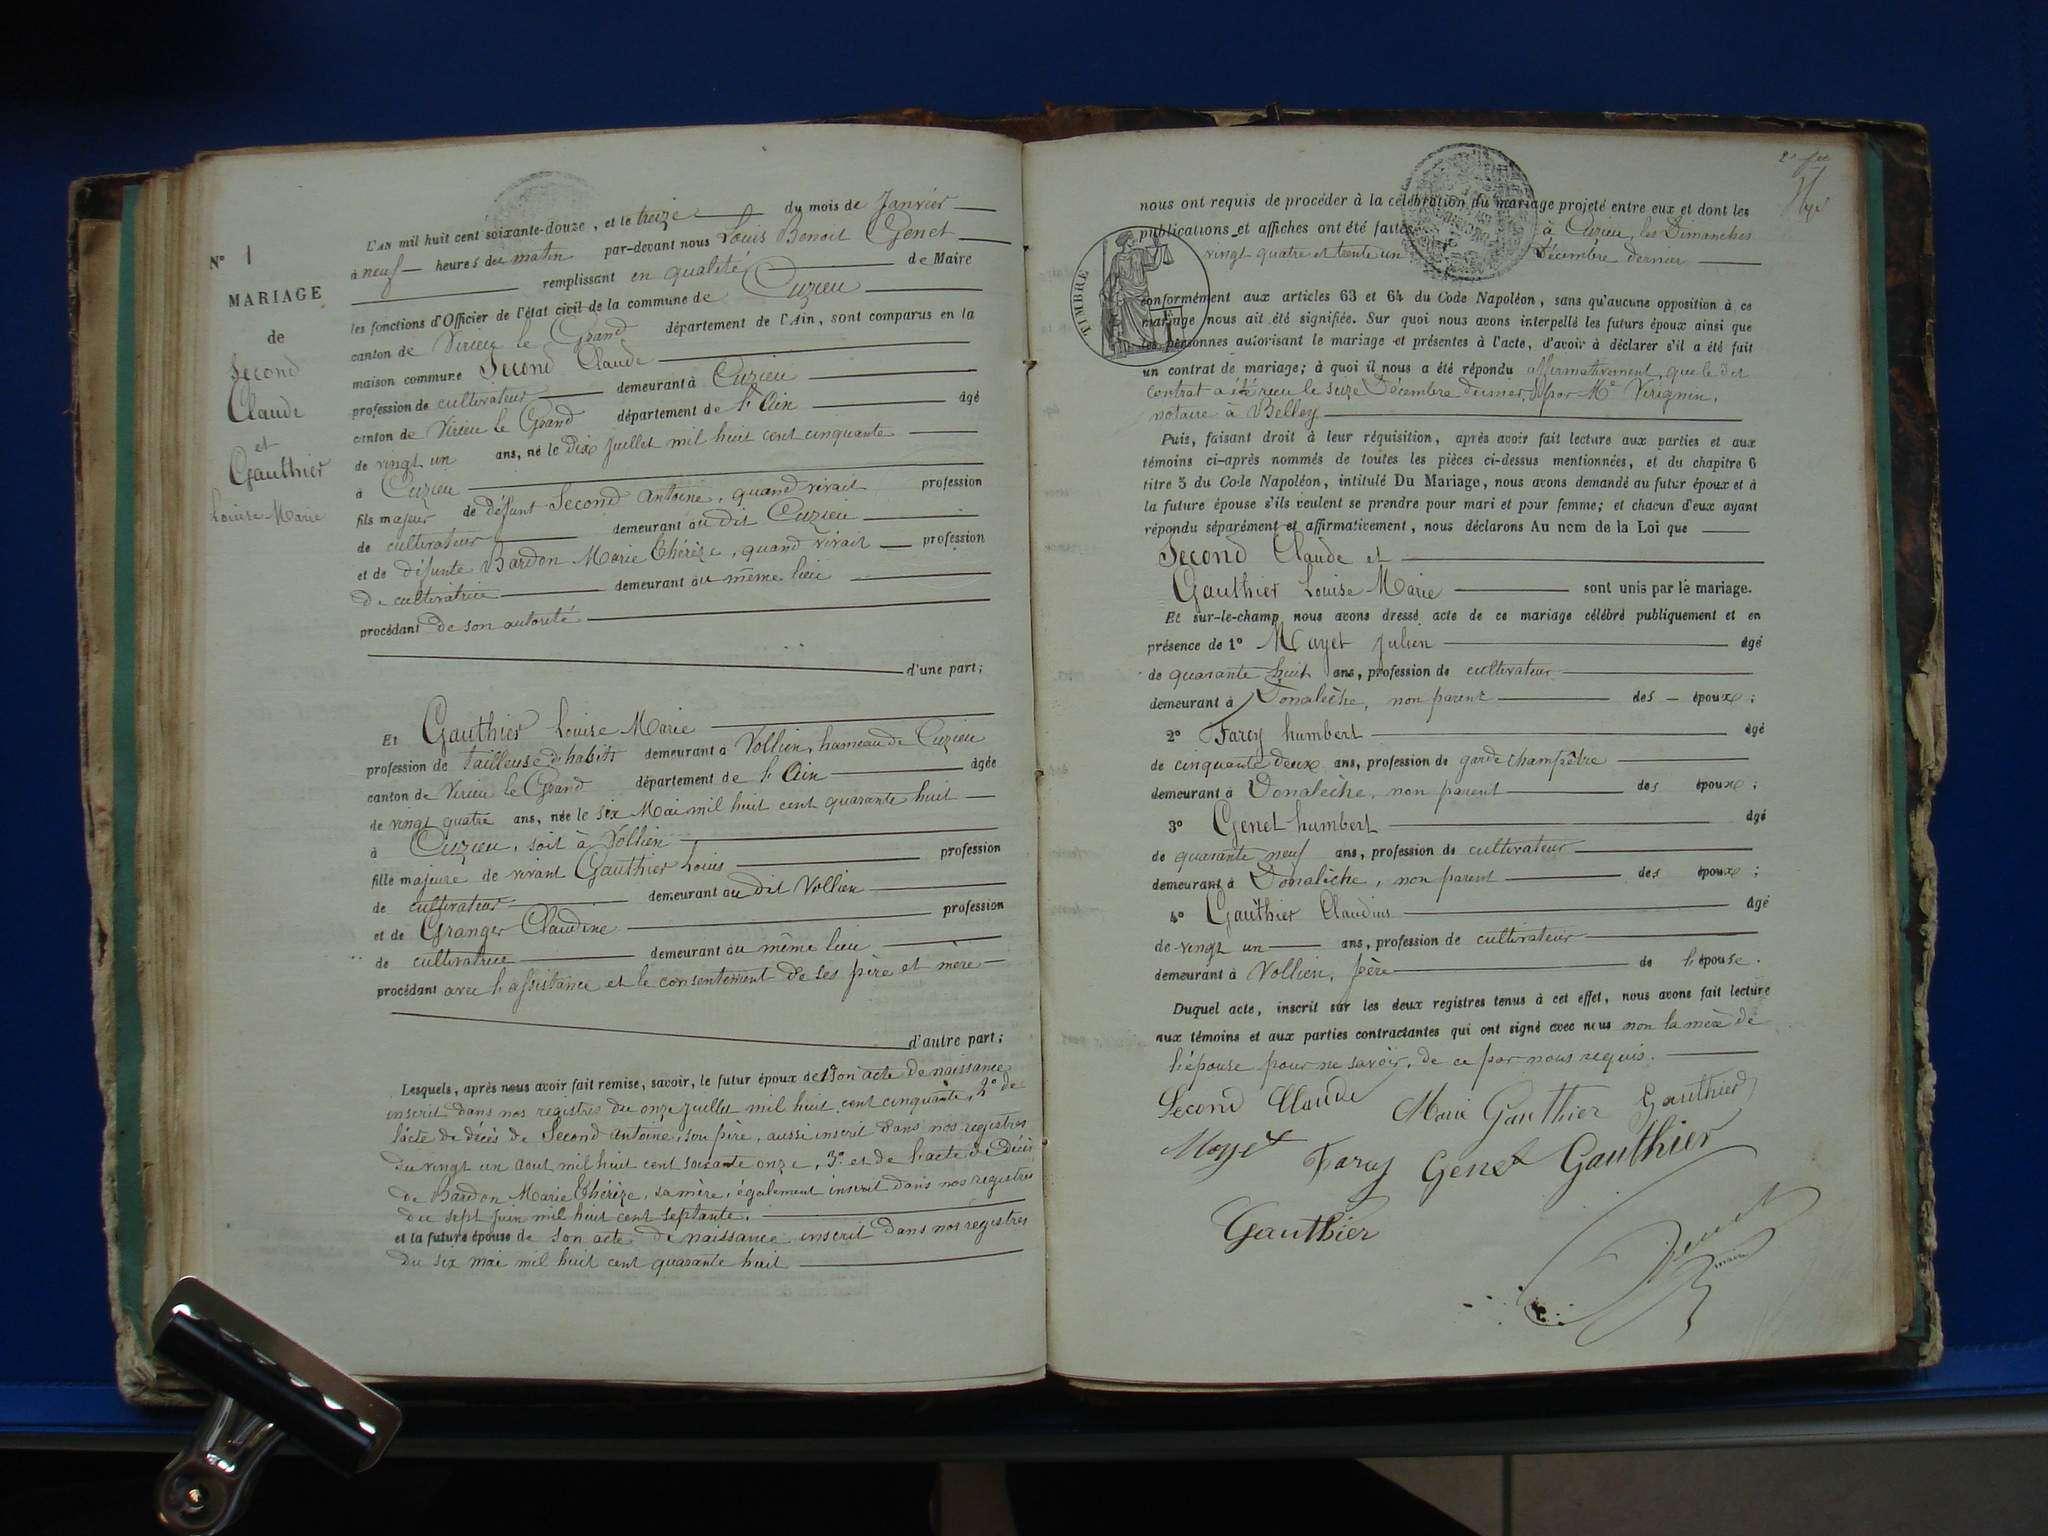 N° 1
MARIAGE
de
Second
Claude
et
Gauthier
Louise Marie
L'AN mil huit cent soixante-douze, et le treize du mois de Janvier
à neuf heures du matin par-devant nous Louis Benoit Genet
remplissant en qualité de Maire
les fonctions d'Officier de l'état civil de la commune de Cuzieu
canton de Virieu le Grand département de l'Ain, sont comparus en la
maison commune Second Claude
profession de cultivateur demeurant à Cuzieu
canton de Virieu le Grand département de l'Ain âgé
de vingt un ans, né le dix juillet mil huit cent cinquante
à Cuzieu
fils majeur de défunt Second Antoine, quand vivait profession
de cultivateur demeurant au dit Cuzieu
et de défunte Bardon Marie Thérèze, quand vivait profession
de cultivatrice demeurant au même lieu
procédant de son autorité
d'une part;
Et Gauthier Louise Marie
profession de tailleuse d'habits demeurant à Vollien, hameau de Cuzieu
canton de Virieu le Grand département de l'Ain âgée
de vingt quatre ans, née le six Mai mil huit cent quarante huit
à Cuzieu, soit à Vollien
fille majeure de vivant Gauthier Louis profession
de cultivateur demeurant au dit Vollien
et de Granger Claudine profession
de cultivatrice demeurant au même lieu
procédant avec l'assistance et le consentement de ses père et mère
d'autre part;
Lesquels, après nous avoir fait remise, savoir, le futur époux de 1° son acte de naissance
inscrit dans nos registres du onze juillet mil huit cent cinquante, 2° de
l'acte de décès de Second Antoine, son père, aussi inscrit dans nos registres
du vingt un aout mil huit cent soixante onze, 3° et de l'acte de décès
de Bardon Marie Thérèze, sa mère, également inscrit dans nos registres
du sept juin mil huit cent septante.
et la future épouse de son acte de naissance inscrit dans nos registres
du six mai mil huit cent quarante huit
nous ont requis de procéder à la célébration du mariage projeté entre eux et dont les
publications et affiches ont été faites à Cuzieu, les Dimanches
vingt quatre et trente un Décembre dernier
TIMBRE
conformément aux articles 63 et 64 du Code Napoléon, sans qu'aucune opposition à ce
mariage nous ait été signifiée. Sur quoi nous avons interpellé les futurs époux ainsi que
les personnes autorisant le mariage et présentes à l'acte, d'avoir à déclarer s'il a été fait
un contrat de mariage; à quoi il nous a été répondu affirmativement, que le dit
contrat a été reçu le seize Décembre dernier, par Me Virignin,
notaire à Belley
Puis, faisant droit à leur réquisition, après avoir fait lecture aux parties et aux
témoins ci-après nommés de toutes les pièces ci-dessus mentionnées, et du chapitre 6
titre 5 du Code Napoléon, intitulé Du Mariage, nous avons demandé au futur époux et à
la future épouse s'ils veulent se prendre pour mari et pour femme; et chacun d'eux ayant
répondu séparément et affirmativement, nous déclarons Au nom de la Loi que
Second Claude et
Gauthier Louise Marie sont unis par le mariage.
Et sur-le-champ nous avons dressé acte de ce mariage célébré publiquement et en
présence de 1° Mayet Julien âgé
de quarante huit ans, profession de cultivateur
demeurant à Donalèche, non parent des époux;
2° Farcy humbert âgé
de cinquante deux ans, profession de garde champêtre
demeurant à Donalèche, non parent des époux;
3° Genet humbert âgé
de quarante neuf ans, profession de cultivateur
demeurant à Donalèche, non parent des époux;
4° Gauthier Claudius âgé
de vingt un ans, profession de cultivateur
demeurant à Vollien, frère de l'épouse.
Duquel acte, inscrit sur les deux registres tenus à cet effet, nous avons fait lecture
aux témoins et aux parties contractantes qui ont signé avec nous non la mère de
l'épouse pour ne savoir, de ce par nous requis.
Second Claude Marie Gauthier Gauthier
Mayet Farcy Genet Gauthier
Gauthier
Genet
maire